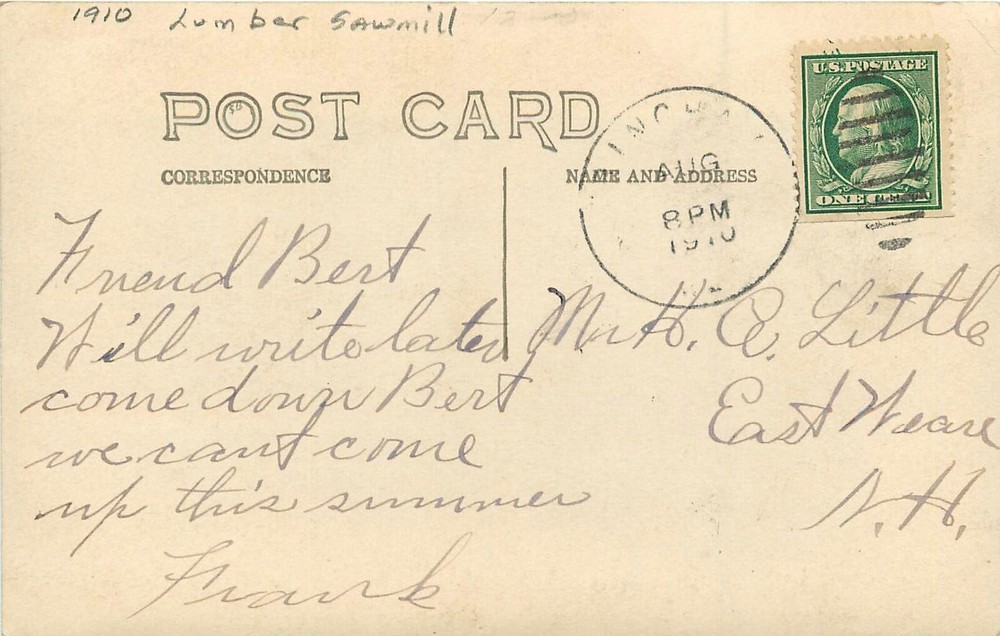 1910 Lumber Sawmill
POST CARD
CORRESPONDENCE
NAME AND ADDRESS
U.S. POSTAGE
ONE
AUG
8 PM
1910
Friend Bert
Will write later
come down Bert
we cant come
up this summer
Frank
Mr H. A. Little
East Weare
N.H.